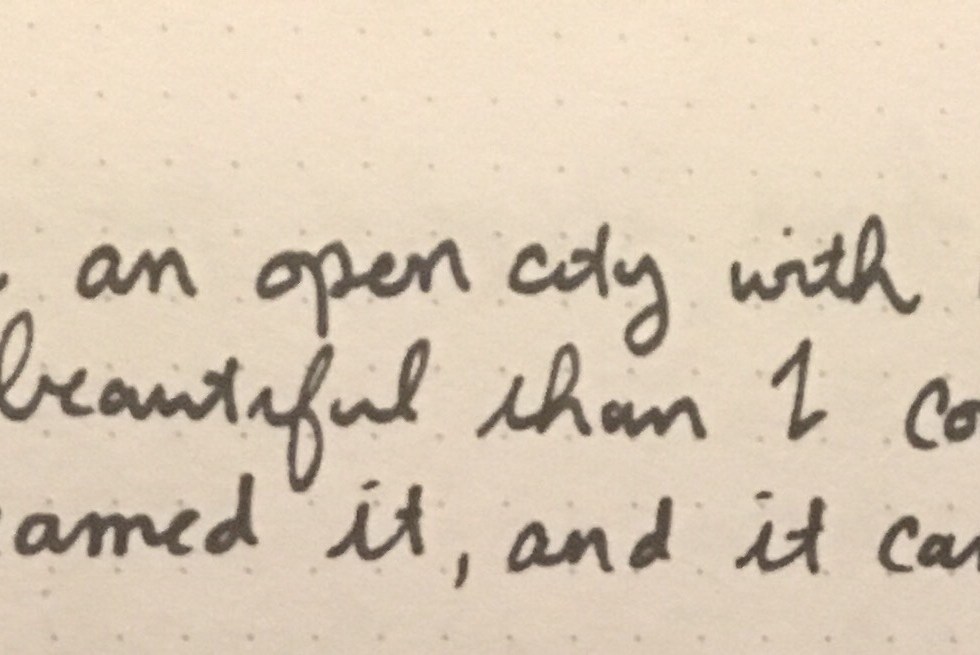 an open city with
beautiful than I co
eamed it, and it can